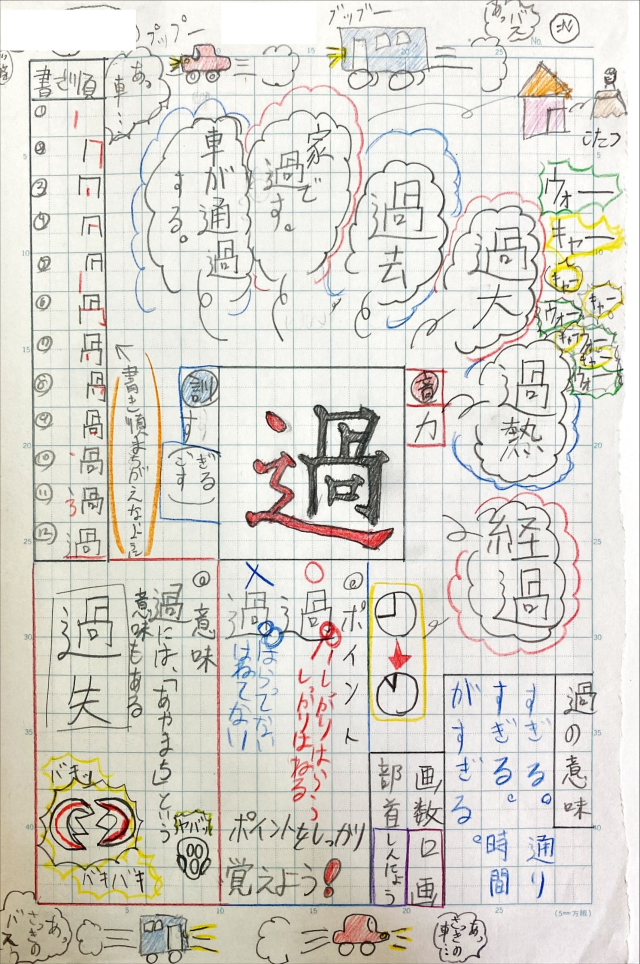 あっ
バス
火
No.
ブッブー
プップー
あっ
車…
こたつ
ウォー
キャー
キャー
ウォー
キャー
キャー
ウォー
過大
過去
家で
過す。
車が通過
する。
過熱
経過
書き順
書き順まちがえないよう
音
カ
訓
す
ぎる
ごす
過
過の意味
すぎる。通り
すぎる。時間
がすぎる。
画数
口画
部首
しんにょう
◎ポイント
○
過
しっかりはらう
しっかりはねる
×
過
はらってない
はねてない
ポイントをしっかり
覚えよう!
◎意味
過には、「あやまち」という
意味もある
過失
ヤバッ
バキッ
バキバキ
あっ
さっきの
車…
あっ
さっきの
バス
(5mm方眼)